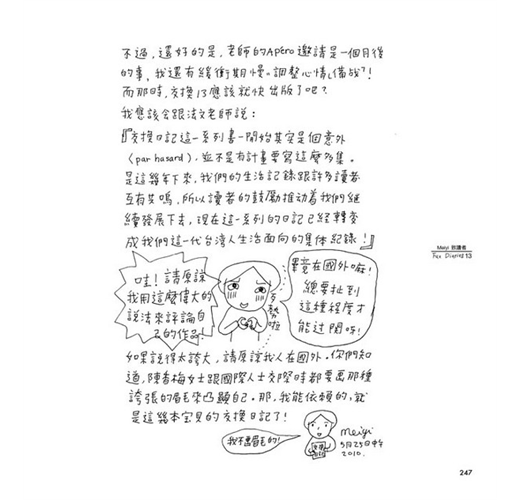 不過，還好的是，老師的Apéro邀請是一個月後
的事，我還有緩衝期慢。調整心情「備戰」！
而那時，交換13應該就快出版了吧？
我應該会跟法文老師說：
『交換日記這一系列書一開始其实是個意外
(par hasard)，並不是有計畫要寫這麼多集。
是這幾年下來，我們的生活記錄跟許多讀者
互有共鳴，所以讀者的鼓勵推动着我們继
續發展下去，現在這一系列的日記已經轉变
成我們這一代台灣人生活面向的集体紀錄！』
哇！請原諒
我用這麼偉大的
說法來評論自
己的作品！
畢竟在國外嘛！
總要扯到
這種程度才
能过関呀！
如果說得太誇大，請原諒我人在國外。你們知
道，陳香梅女士跟國際人士交際時都要画那種
誇張的眉毛來凸顯自己。那，我能依賴的，就
是這幾本宝貝的交換日記了！
我不畫眉毛的！
meiyi
5月25日中午
2010.
Meiyi 致讀者
13
247